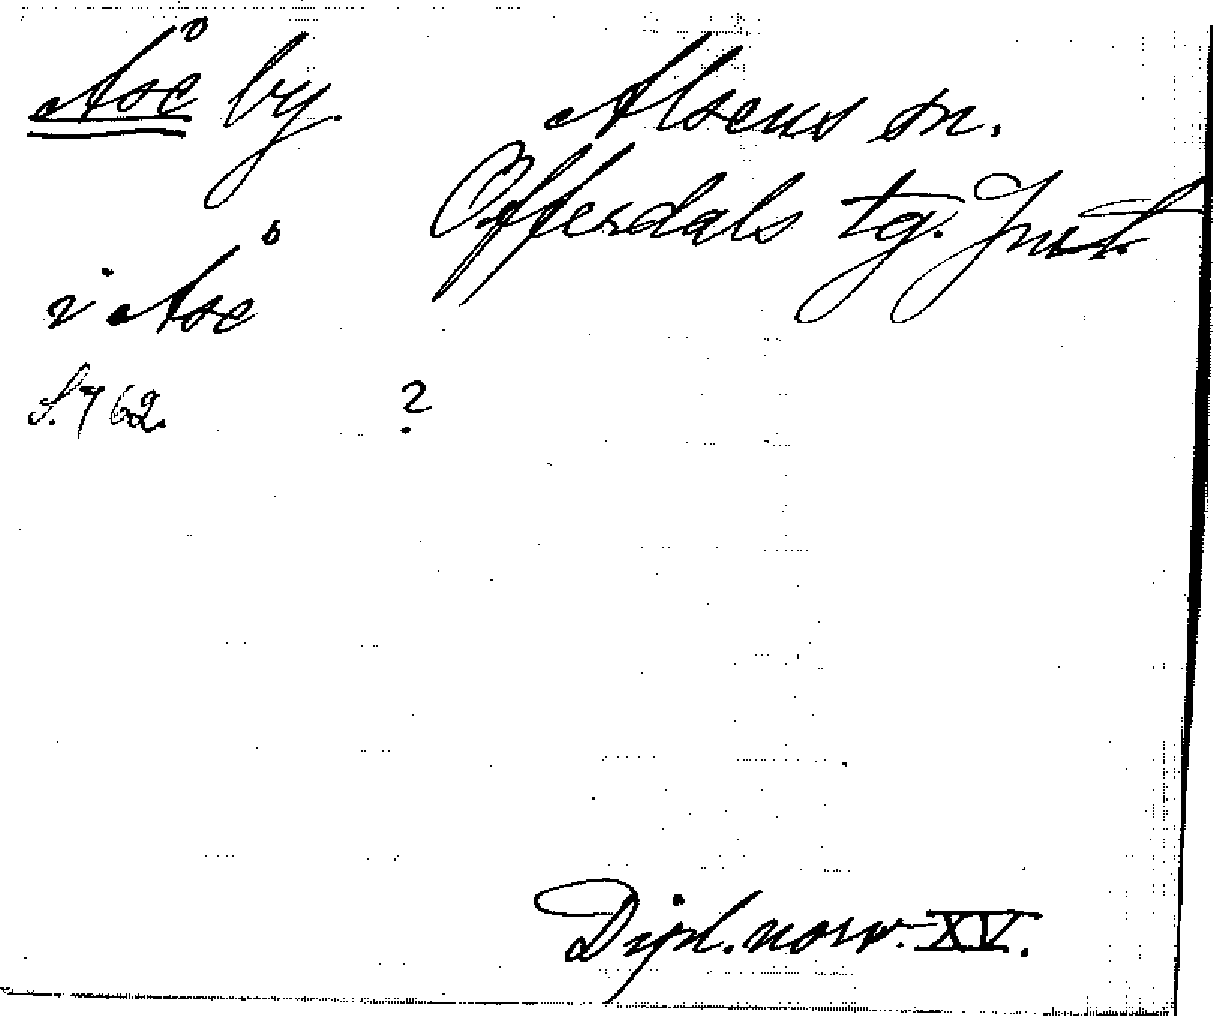 Åse by.
Alsens sn.
Offerdals tg. Jmt.
i Åse
S. 762.
?
Dipl. norv. XV.